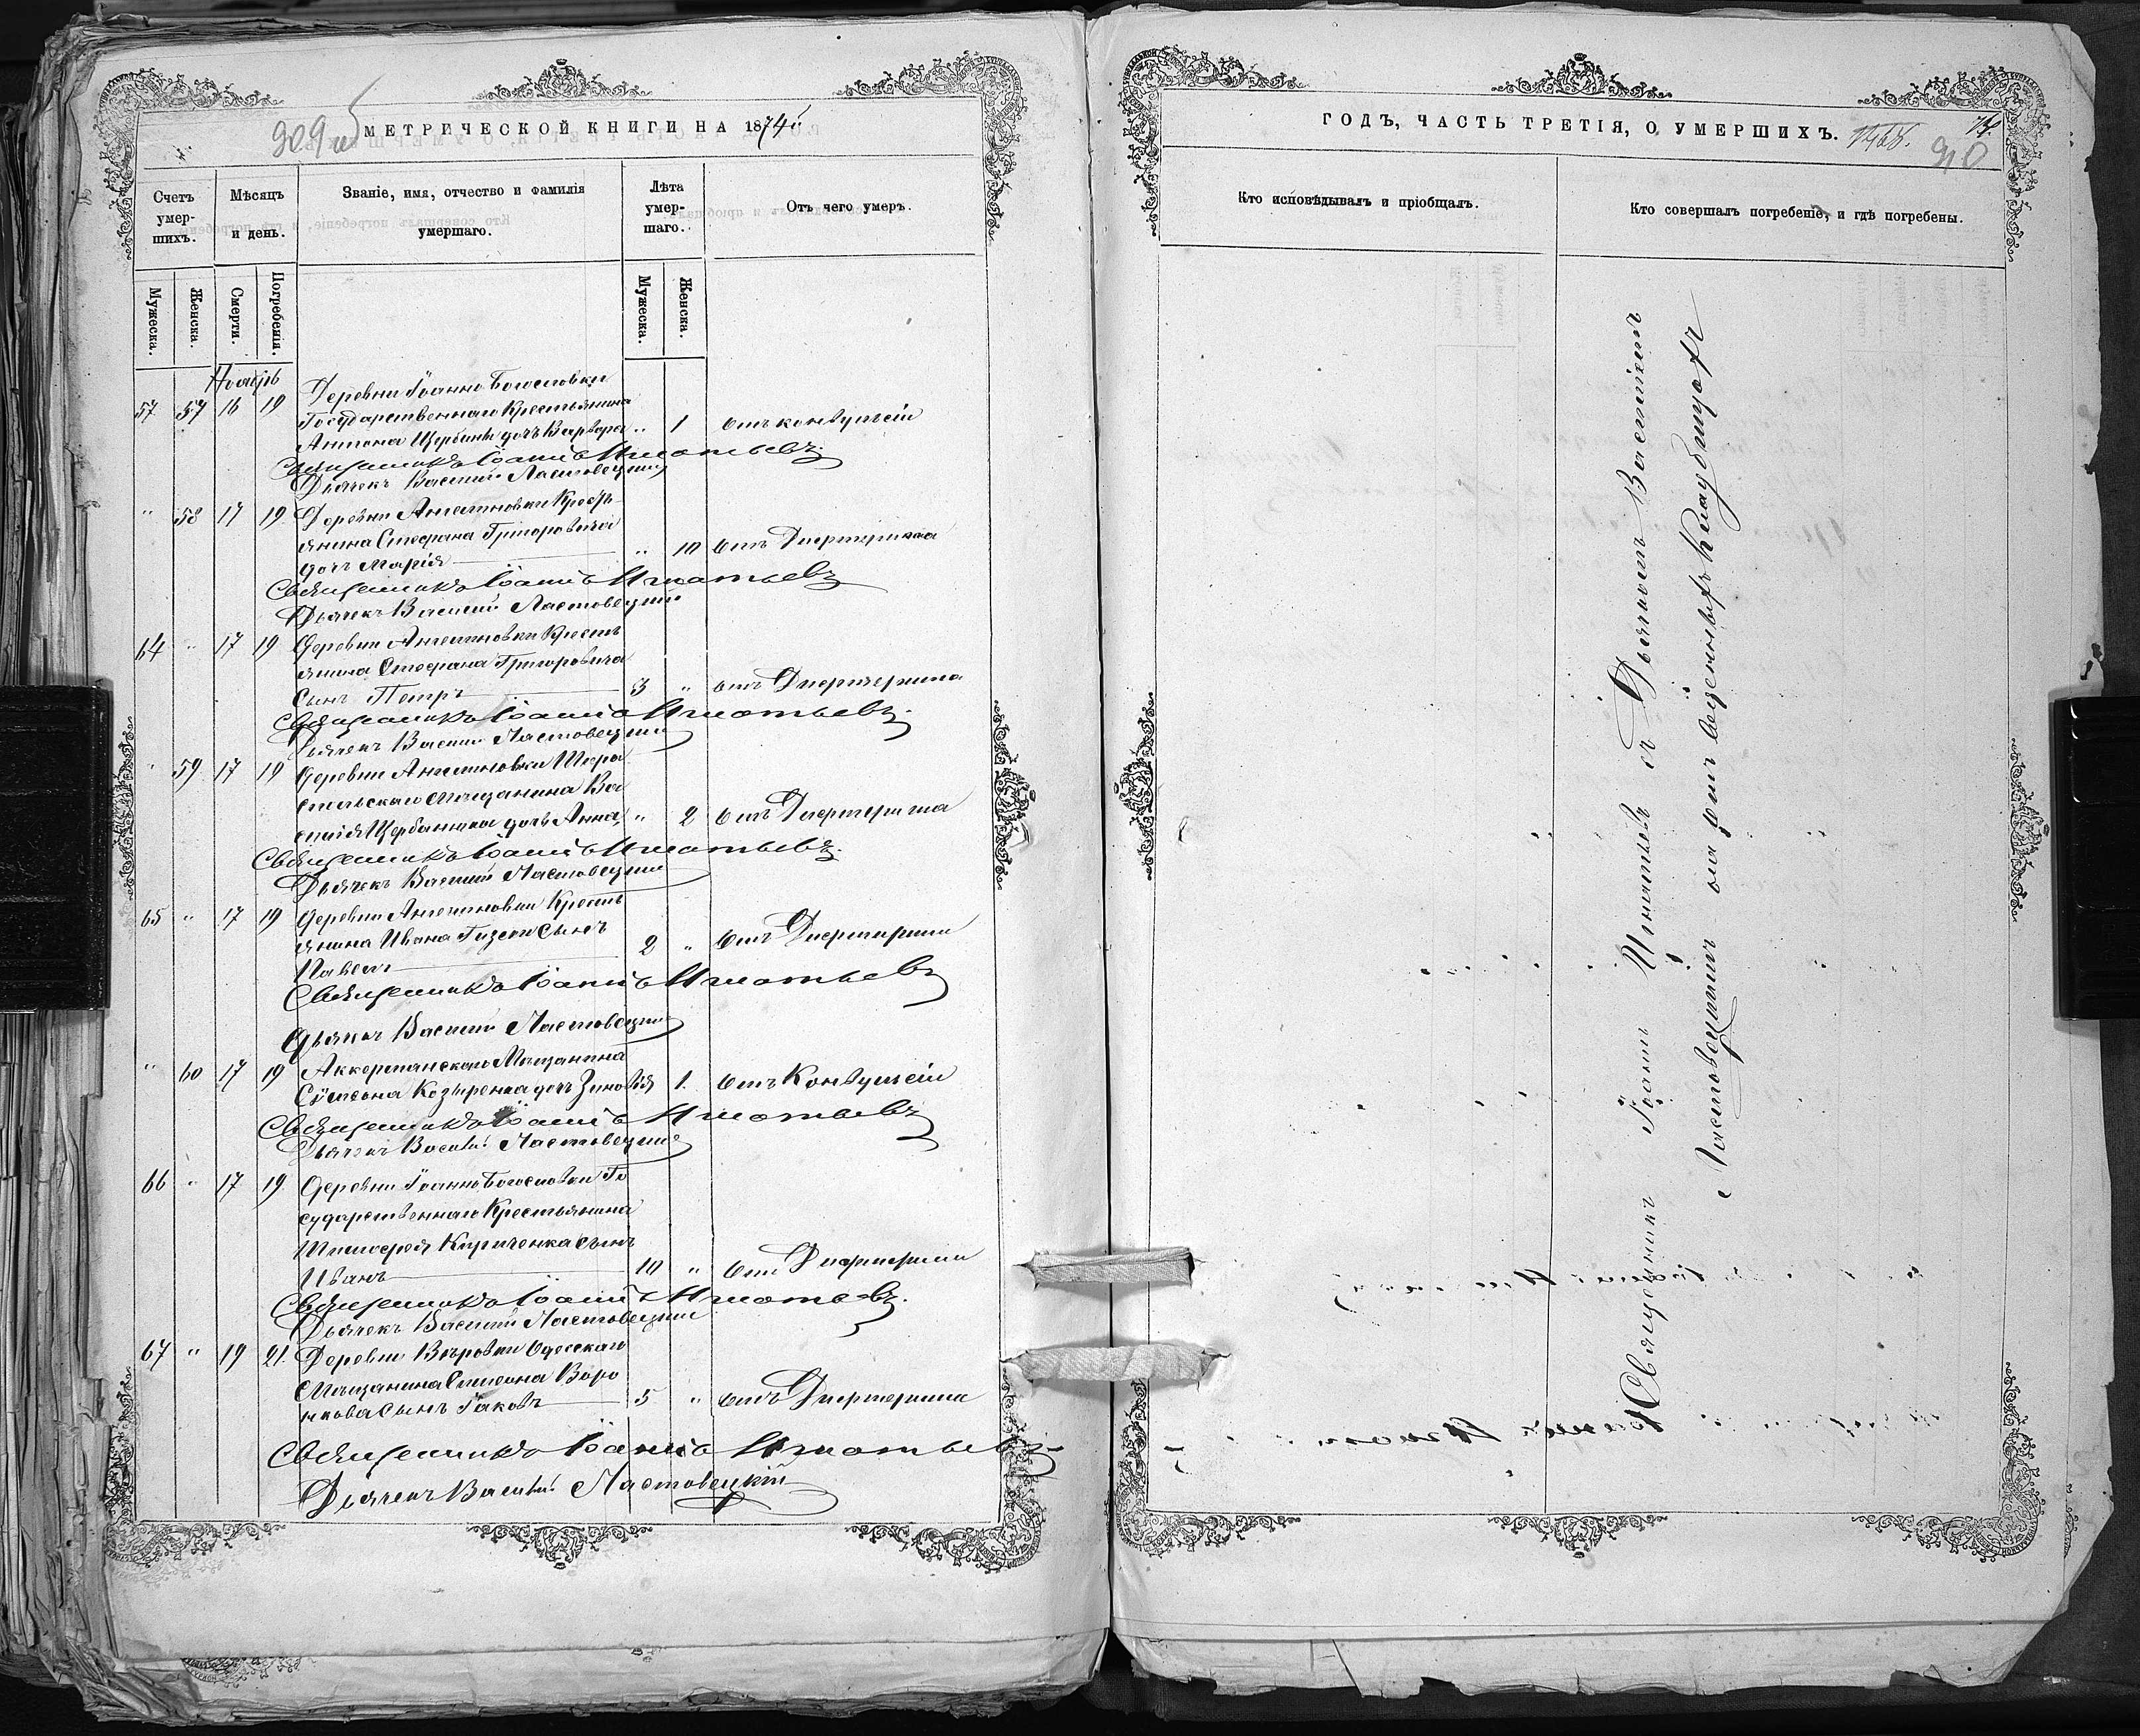 309 об
МЕТРИЧЕСКОЙ КНИГИ НА 1874й
Счетъ умер-шихъ.
Мѣсяцъ и день.
Званіе, имя, отчество и фамилія умершаго.
Лѣта умер-шаго.
Отъ чего умеръ.
Мужеска.
Женска.
Смерти.
Погребенія.
Мужеска.
Женска.
Ноябрь
Деревни Іоанно Богословки
57 57 16 19 Государственнаго Крестьянина
Антона Щербины дочь Варвара „ 1 Отъ конвульсіи
Священникъ Іоаннъ Игнатьевъ
Дьячекъ Василій Ластовецкій
„ 58 17 19 Деревни Ангелиновки Кресть
янина Стефана Григоровича
дочь Марія „ 10 Отъ Дифтерита
Священникъ Іоаннъ Игнатьевъ
Дьячекъ Василій Ластовецкій
64 „ 17 19 Деревни Ангелиновки Кресть
янина Стефана Григоровича
Сынъ Петръ 3 „ отъ Дифтерита
Священникъ Іоаннъ Игнатьевъ
Дьячекъ Василій Ластовецкій
„ 59 17 19 Деревни Ангелиновки
Мѣщанина Ва
силія Щербанюка дочь Анна „ 2 Отъ Дифтерита
Священникъ Іоаннъ Игнатьевъ
Дьячекъ Василій Ластовецкій
65 „ 17 19 Деревни Ангелиновки Кресть
янина Ивана Сынъ
Павелъ 2 „ Отъ Дифтерита
Священникъ Іоаннъ Игнатьевъ
Дьячекъ Василій Ластовецкій
„ 60 17 19 Аккерманскаго Мѣщанина
Сѵмеона Козыренка дочь Зиновія 1 Отъ Конвульсіи
Священникъ Іоаннъ Игнатьевъ
Дьячекъ Василій Ластовецкій
66 „ 17 19 Деревни Іоанно Богословки Го
сударственнаго Крестьянина
Тимофея Кириченка сынъ
Иванъ 10 „ Отъ Дифтерита
Священникъ Іоаннъ Игнатьевъ
Дьячекъ Василій Ластовецкій
67 „ 19 21 Деревни Вѣровки Одесскаго
Мѣщанина Симеона Воро
нкова Сынъ Іаковъ 5 „ отъ Дифтерита
Священникъ Іоаннъ Игнатьевъ
Дьячекъ Василій Ластовецкій
ГОДЪ, ЧАСТЬ ТРЕТІЯ, О УМЕРШИХЪ.
310
Кто исповѣдывалъ и пріобщалъ.
Кто совершалъ погребеніе, и гдѣ погребены.
Священникъ Іоаннъ Игнатьевъ съ Дьячкомъ Василіемъ
Ластовецкимъ на отведенныхъ кладбищахъ